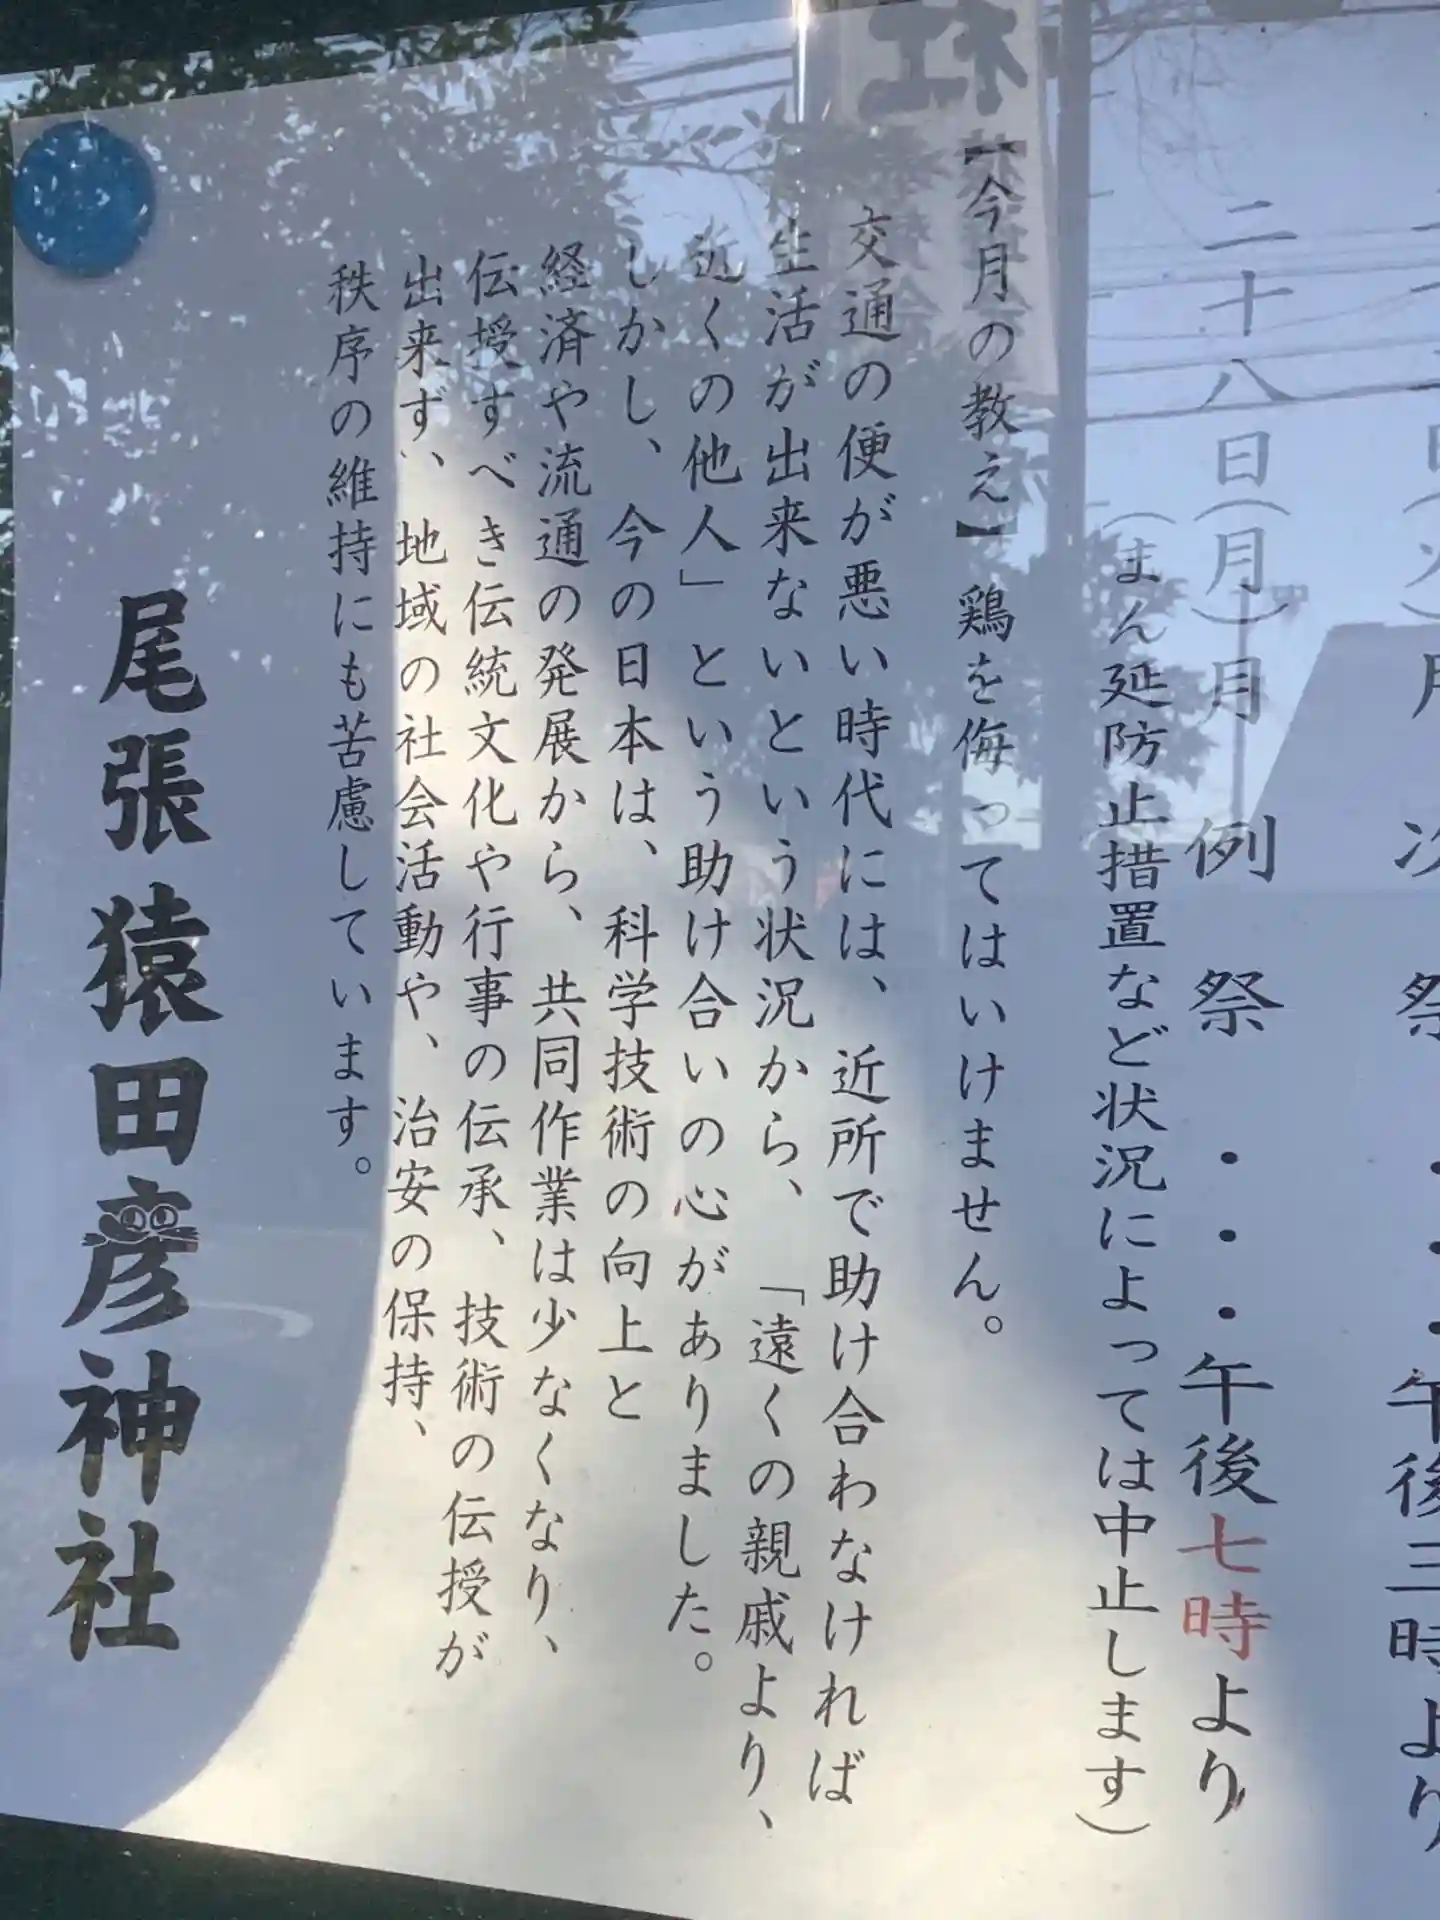 午後三時より
二十八日(月)月 例 祭 ・・・午後七時より
(まん延防止措置など状況によっては中止します)
【今月の教え】鶏を侮ってはいけません。
交通の便が悪い時代には、近所で助け合わなければ
生活が出来ないという状況から、「遠くの親戚より、
近くの他人」という助け合いの心がありました。
しかし、今の日本は、科学技術の向上と
経済や流通の発展から、共同作業は少なくなり、
伝授すべき伝統文化や行事の伝承、技術の伝授が
出来ず、地域の社会活動や、治安の保持、
秩序の維持にも苦慮しています。
尾張猿田彦神社